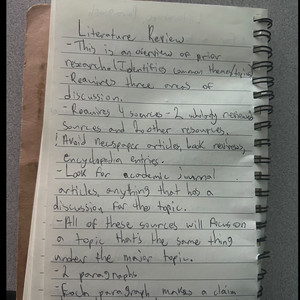 Literature Review
- This is an overview of prior
research/Identifies common themes/
- Requires three areas of
discussion.
- Requires 4 sources - 2
sources and 2 other resources.
! Avoid newspaper articles, book reviews,
encyclopedia entries.
- Look for academic journal
articles, anything that has a
discussion for the topic.
- All of these sources will focus on
a topic that's the same thing
under the major topic.
- 2 paragraphs
- Each paragraph makes a claim